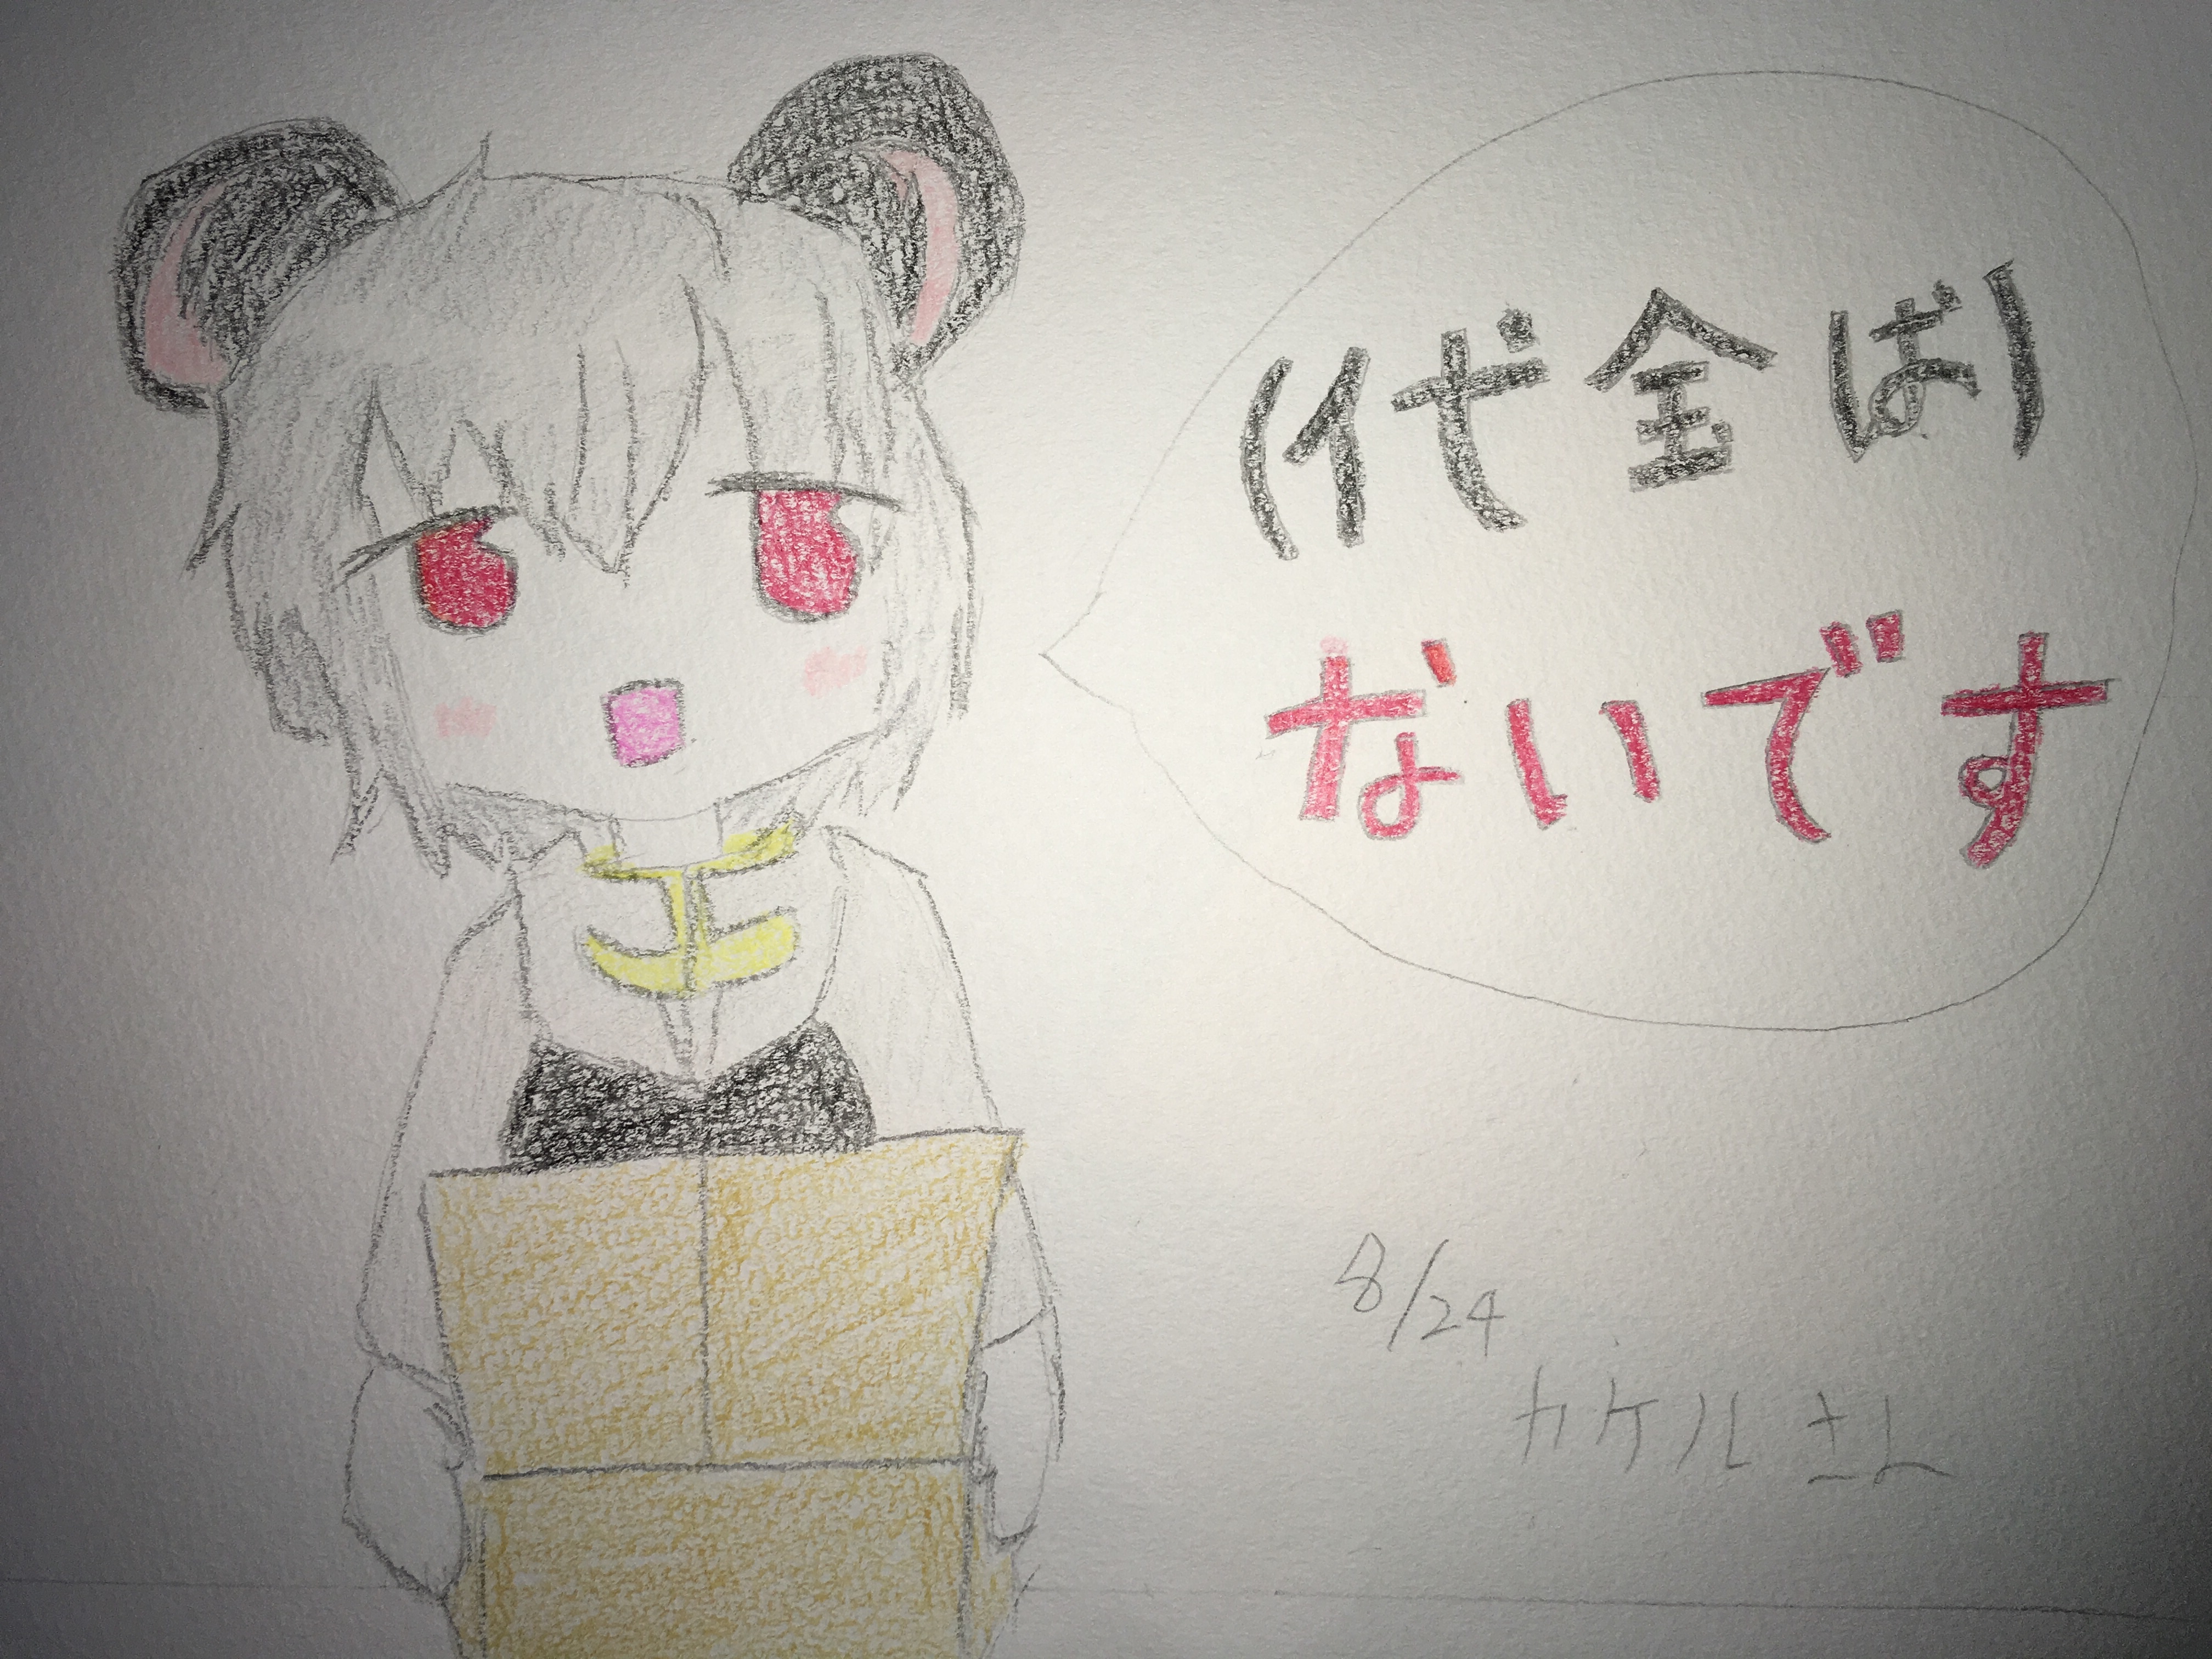 (代金ば)
ないです
8/24
カケルさん